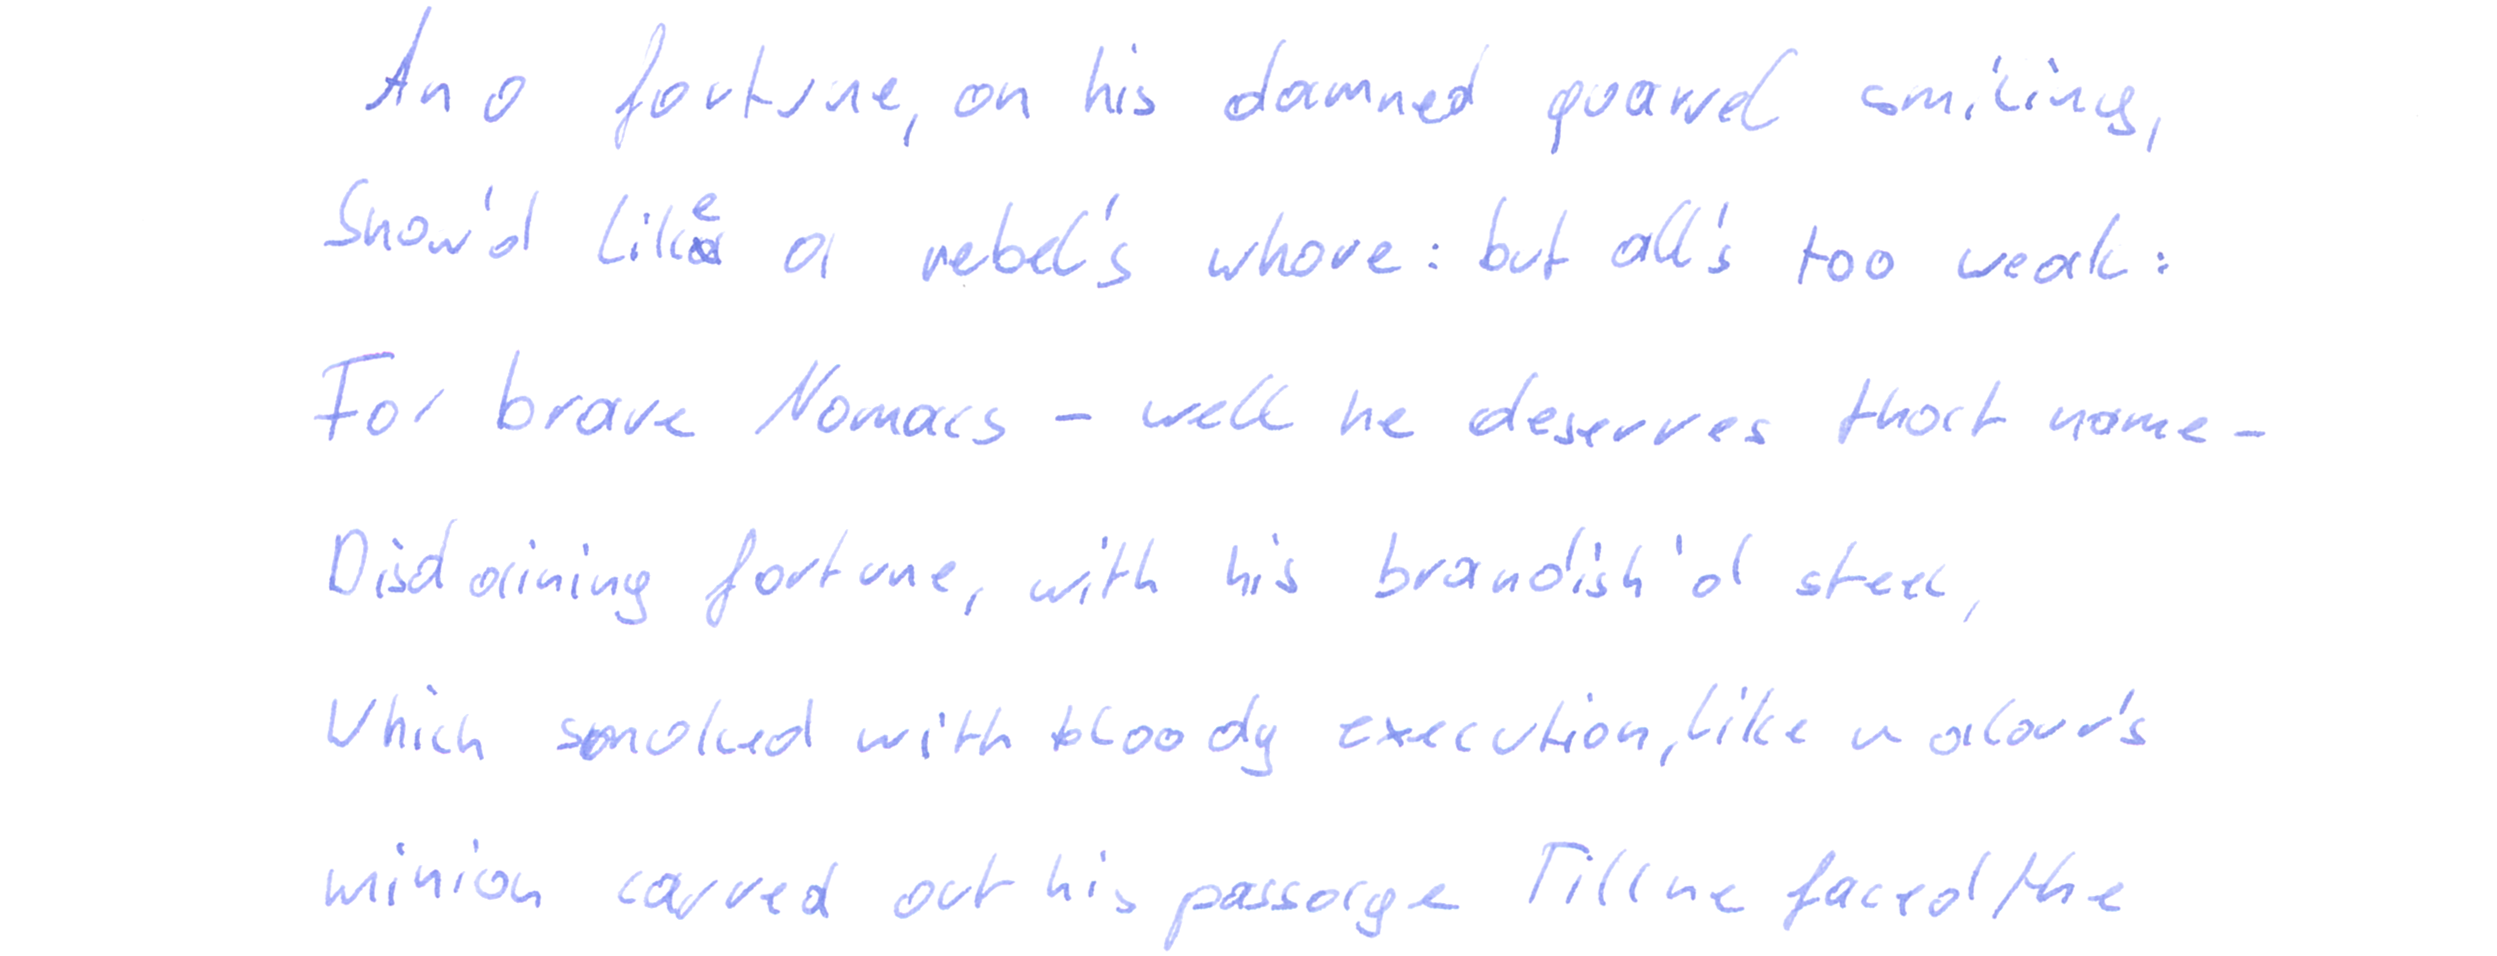 And fortune, on his damned quarrel smiling,
Show'd like a rebel's whore: but all's too weak:
For brave Nomacs - well he deserves that name -
Disdaining fortune, with his brandish'd steel,
Which smoked with bloody execution, like valour's
minion carved out his passage Till he faced the